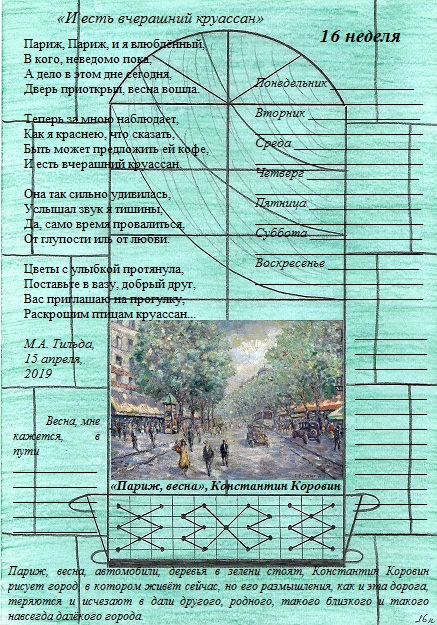 «И есть вчерашний круассан»
16 неделя
Париж, Париж, и я влюблённый,
В кого, неведомо пока,
А дело в этом дне сегодня,
Дверь приоткрыл, весна вошла.
Теперь за мною наблюдает,
Как я краснею, что сказать,
Быть может предложить ей кофе,
И есть вчерашний круассан.
Она так сильно удивилась,
Услышал звук я тишины,
Да, само время провалиться,
От глупости иль от любви.
Цветы с улыбкой протянула,
Поставьте в вазу, добрый друг,
Вас приглашаю на прогулку,
Раскрошим птицам круассан...
М.А. Тильда,
15 апреля,
2019
Понедельник
Вторник
Среда
Четверг
Пятница
Суббота
Воскресенье
Весна, мне
кажется, в
пути
«Париж, весна», Константин Коровин
Париж, весна, автомобили, деревья в зелени стоят, Константин Коровин
рисует город, в котором живёт сейчас, но его размышления, как и эта дорога,
теряются и исчезают в дали другого, родного, такого близкого и такого
навсегда далёкого города.
16 н